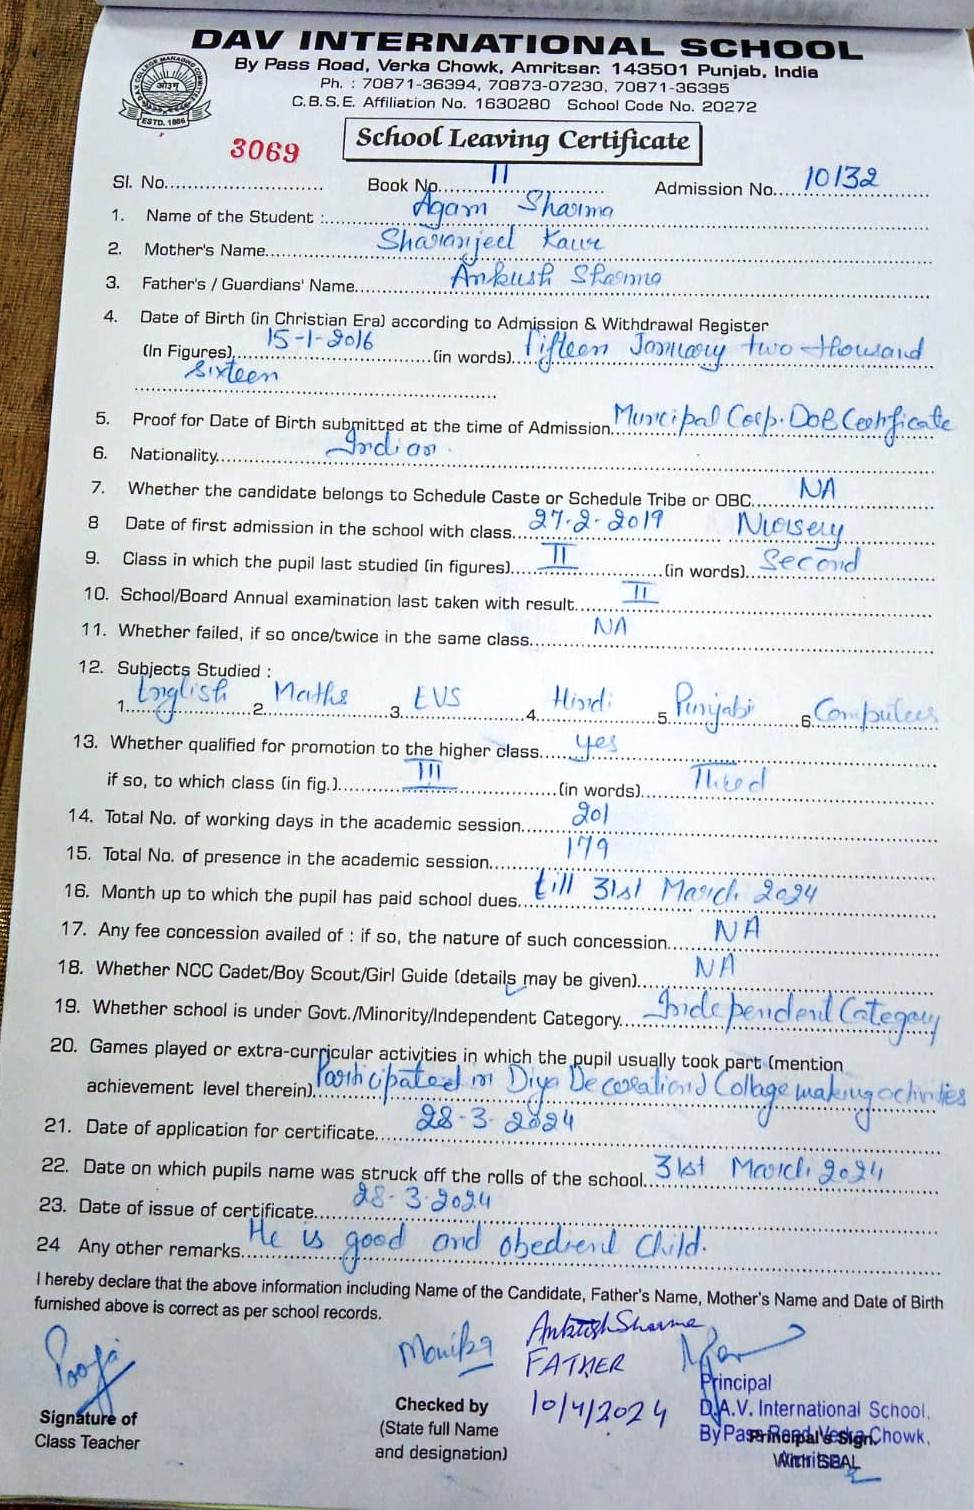 DAV INTERNATIONAL SCHOOL
By Pass Road, Verka Chowk, Amritsar. 143501 Punjab, India
Ph. : 70871-36394, 70873-07230, 70871-36395
C.B.S.E. Affiliation No. 1630280 School Code No. 20272
ESTD. 1886
School Leaving Certificate
3069
Sl. No. Book No. 11 Admission No. 10132
1. Name of the Student : Agam Sharma
2. Mother's Name Sharanjeet Kaur
3. Father's / Guardians' Name Ankush Sharma
4. Date of Birth (in Christian Era) according to Admission & Withdrawal Register
(In Figures) 15-1-2016 (in words) Fifteen January two thousand
Sixteen
5. Proof for Date of Birth submitted at the time of Admission. Municipal Corp. DOB Certificate
6. Nationality Indian
7. Whether the candidate belongs to Schedule Caste or Schedule Tribe or OBC NA
8 Date of first admission in the school with class 27-2-2019 Nursery
9. Class in which the pupil last studied (in figures) II (in words) Second
10. School/Board Annual examination last taken with result II
11. Whether failed, if so once/twice in the same class NA
12. Subjects Studied :
1. English 2. Maths 3. EVS 4. Hindi 5. Punjabi 6. Computers
13. Whether qualified for promotion to the higher class yes
if so, to which class (in fig.) III (in words) Third
14. Total No. of working days in the academic session 201
15. Total No. of presence in the academic session 179
16. Month up to which the pupil has paid school dues till 31st March 2024
17. Any fee concession availed of : if so, the nature of such concession NA
18. Whether NCC Cadet/Boy Scout/Girl Guide (details may be given) NA
19. Whether school is under Govt./Minority/Independent Category Independent Category
20. Games played or extra-curricular activities in which the pupil usually took part (mention
achievement level therein) Participated in Diya Decoration Collage making activities
21. Date of application for certificate 28-3-2024
22. Date on which pupils name was struck off the rolls of the school 31st March 2024
23. Date of issue of certificate 28-3-2024
24 Any other remarks He is good and obedient Child.
I hereby declare that the above information including Name of the Candidate, Father's Name, Mother's Name and Date of Birth
furnished above is correct as per school records.
Pooja Monika Ankush Sharma
FATHER
10/4/2024
Principal
D.A.V. International School,
By Pass Road, Verka Chowk,
Signature of
Class Teacher
Checked by
(State full Name
and designation)
Principal's Sign.
With SEAL